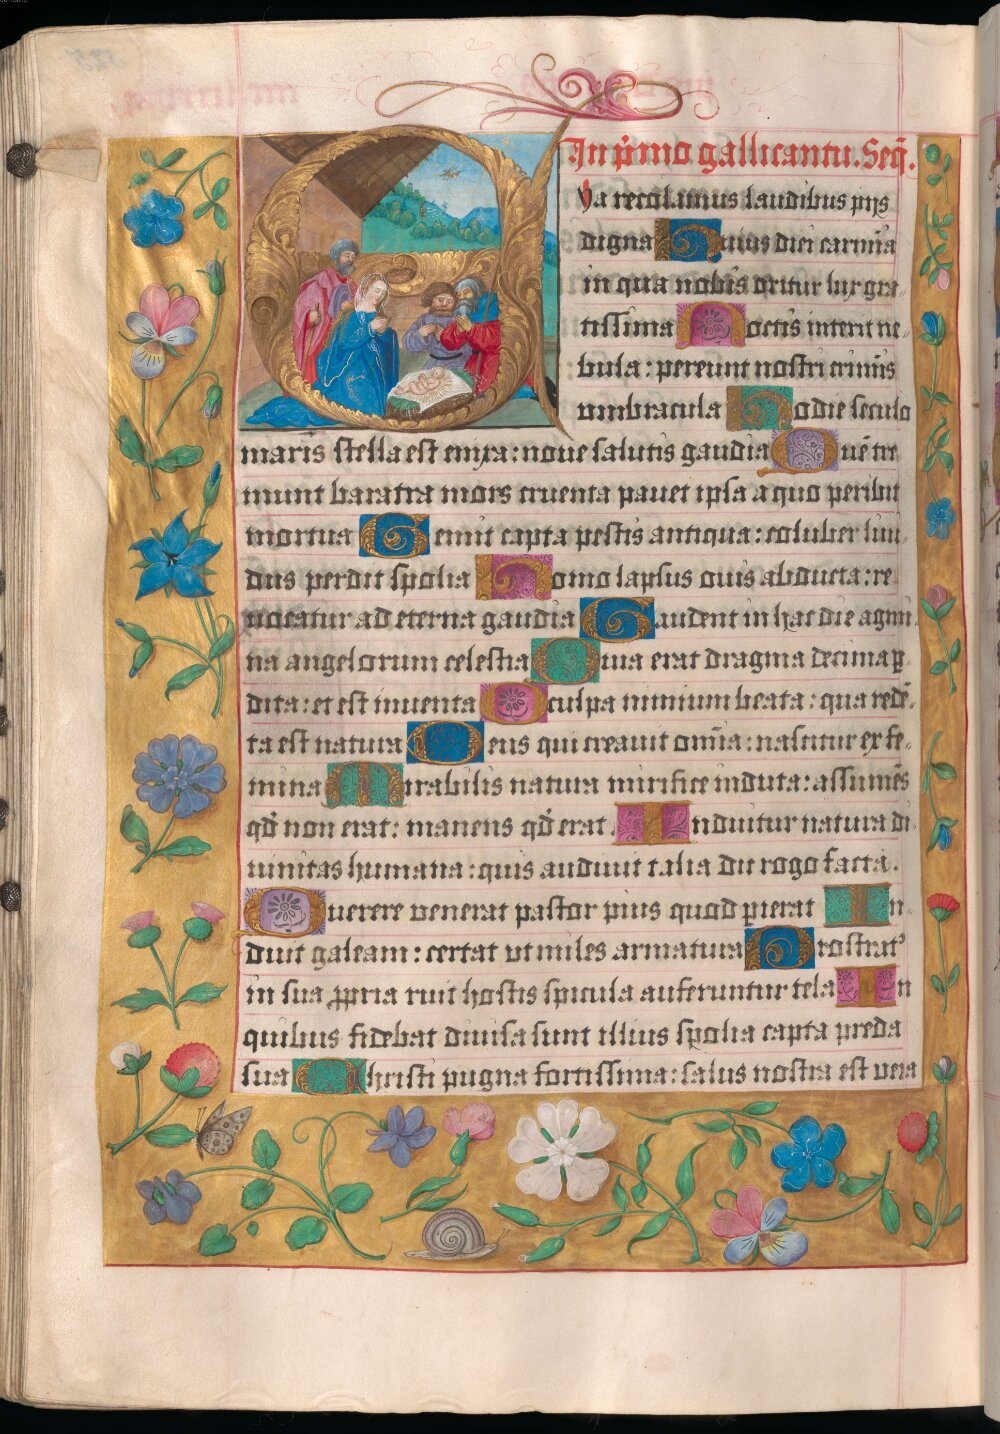 In p̄mo gallicantu. Seq̄.
Ya recolimus laudibus pijs
digna Huius diei carmīa
in qua nobis oritur lux gra-
tissima Noctis interit ne-
bula: pereunt nostri criminis
umbracula Hodie seculo
maris stella est enixa: noue salutis gaudia Quē tre-
munt baratra mors cruenta pauet ipsa a quo peribit
mortua Gemit capta pestis antiqua: coluber liui-
dus perdit spolia Homo lapsus ouis abducta: re-
uocatur ad eterna gaudia Gaudent in hac die agmi-
na angelorum celestia Quia erat dragma decima ꝑ-
dita: et est inuenta O culpa nimium beata: qua redē-
ta est natura Deus qui creauit omīa: nascitur ex fe-
mina Mirabilis natura mirifice induta: assumēs
qd̄ non erat: manens qd̄ erat. Induitur natura di-
uinitas humana: quis audiuit talia dic rogo facta.
Querere venerat pastor pius quod pierat In-
duit galeam: certat ut miles armatura Prostrat᾽
in sua ꝓpria ruit hostis spicula auferuntur tela In
quibus fidebat diuisa sunt illius spolia capta preda
sua Christi pugna fortissima: salus nostra est vera